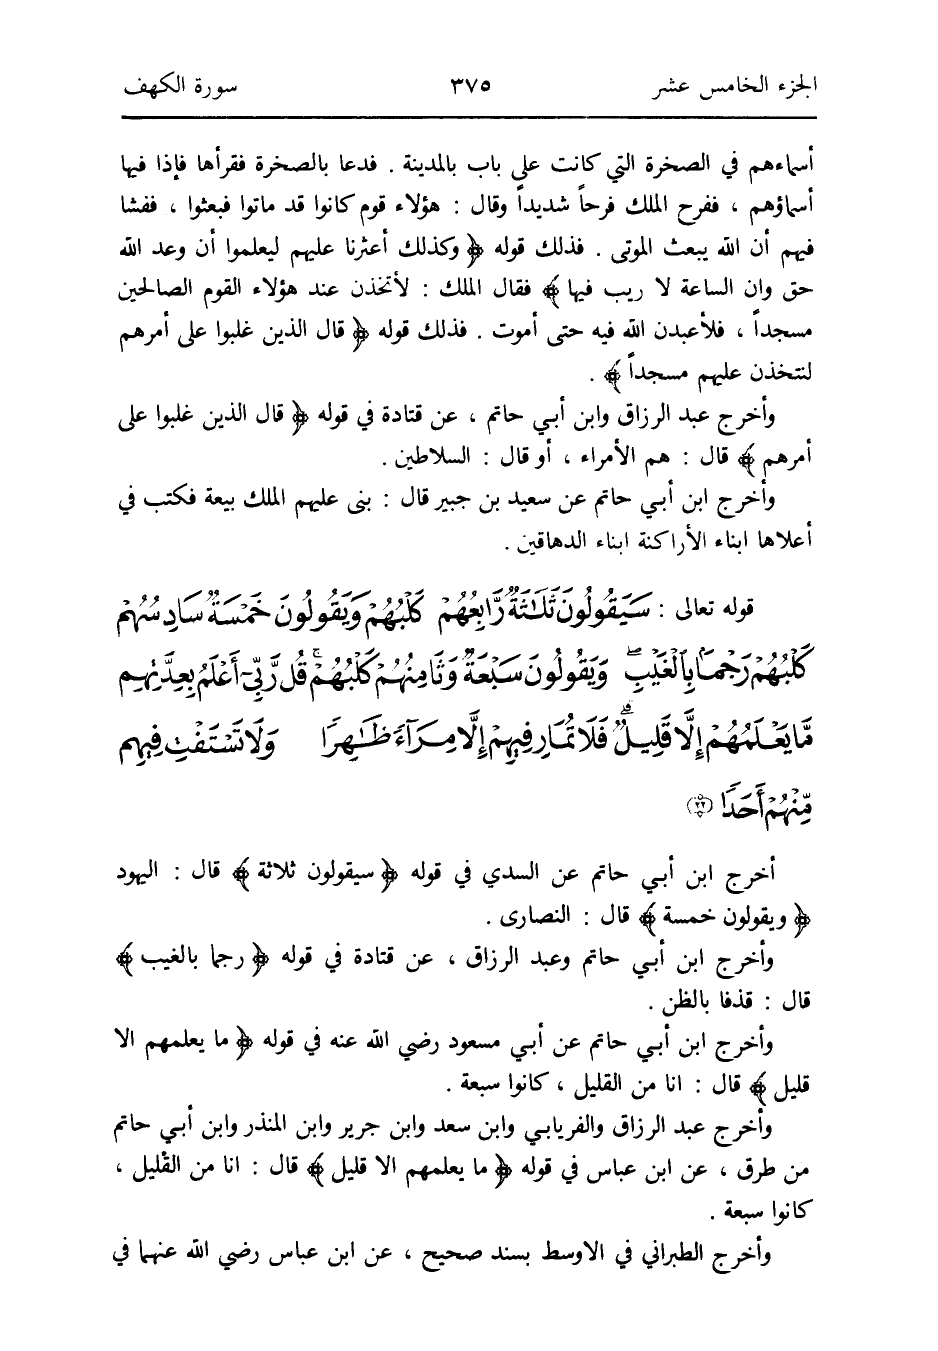 الجزء الخامس عشر ٣٧٥ سورة الكهف
أسماءهم في الصخرة التي كانت على باب بالمدينة . فدعا بالصخرة فقرأها فإذا فيها
أسماؤهم ، ففرح الملك فرحاً شديداً وقال : هؤلاء قوم كانوا قد ماتوا فبعثوا ، ففشا
فيهم أن الله يبعث الموتى . فذلك قوله ﴿ وكذلك أعثرنا عليهم ليعلموا أن وعد الله
حق وان الساعة لا ريب فيها ﴾ فقال الملك : لأتخذن عند هؤلاء القوم الصالحين
مسجداً ، فلأعبدن الله فيه حتى أموت . فذلك قوله ﴿ قال الذين غلبوا على أمرهم
لنتخذن عليهم مسجداً ﴾ .
وأخرج عبد الرزاق وابن أبي حاتم ، عن قتادة في قوله ﴿ قال الذين غلبوا على
أمرهم ﴾ قال : هم الأمراء ، أو قال : السلاطين .
وأخرج ابن أبي حاتم عن سعيد بن جبير قال : بنى عليهم الملك بيعة فكتب في
أعلاها ابناء الأراكنة ابناء الدهاقين .
قوله تعالى : سَيَقُولُونَ ثَلَٰثَةٌ رَّابِعُهُمْ كَلْبُهُمْ وَيَقُولُونَ خَمْسَةٌ سَادِسُهُمْ
كَلْبُهُمْ رَجْمًا بِالْغَيْبِ ۖ وَيَقُولُونَ سَبْعَةٌ وَثَامِنُهُمْ كَلْبُهُمْ ۚ قُل رَّبِّىٓ أَعْلَمُ بِعِدَّتِهِم
مَّا يَعْلَمُهُمْ إِلَّا قَلِيلٌ ۗ فَلَا تُمَارِ فِيهِمْ إِلَّا مِرَآءً ظَٰهِرًا وَلَا تَسْتَفْتِ فِيهِم
مِّنْهُمْ أَحَدًا ﴿٢٢﴾
أخرج ابن أبي حاتم عن السدي في قوله ﴿ سيقولون ثلاثة ﴾ قال : اليهود
﴿ ويقولون خمسة ﴾ قال : النصارى .
وأخرج ابن أبي حاتم وعبد الرزاق ، عن قتادة في قوله ﴿ رجما بالغيب ﴾
قال : قذفا بالظن .
وأخرج ابن أبي حاتم عن أبي مسعود رضي الله عنه في قوله ﴿ ما يعلمهم الا
قليل ﴾ قال : انا من القليل ، كانوا سبعة .
وأخرج عبد الرزاق والفريابي وابن سعد وابن جرير وابن المنذر وابن أبي حاتم
من طرق ، عن ابن عباس في قوله ﴿ ما يعلمهم الا قليل ﴾ قال : انا من القليل ،
كانوا سبعة .
وأخرج الطبراني في الاوسط بسند صحيح ، عن ابن عباس رضي الله عنهما في